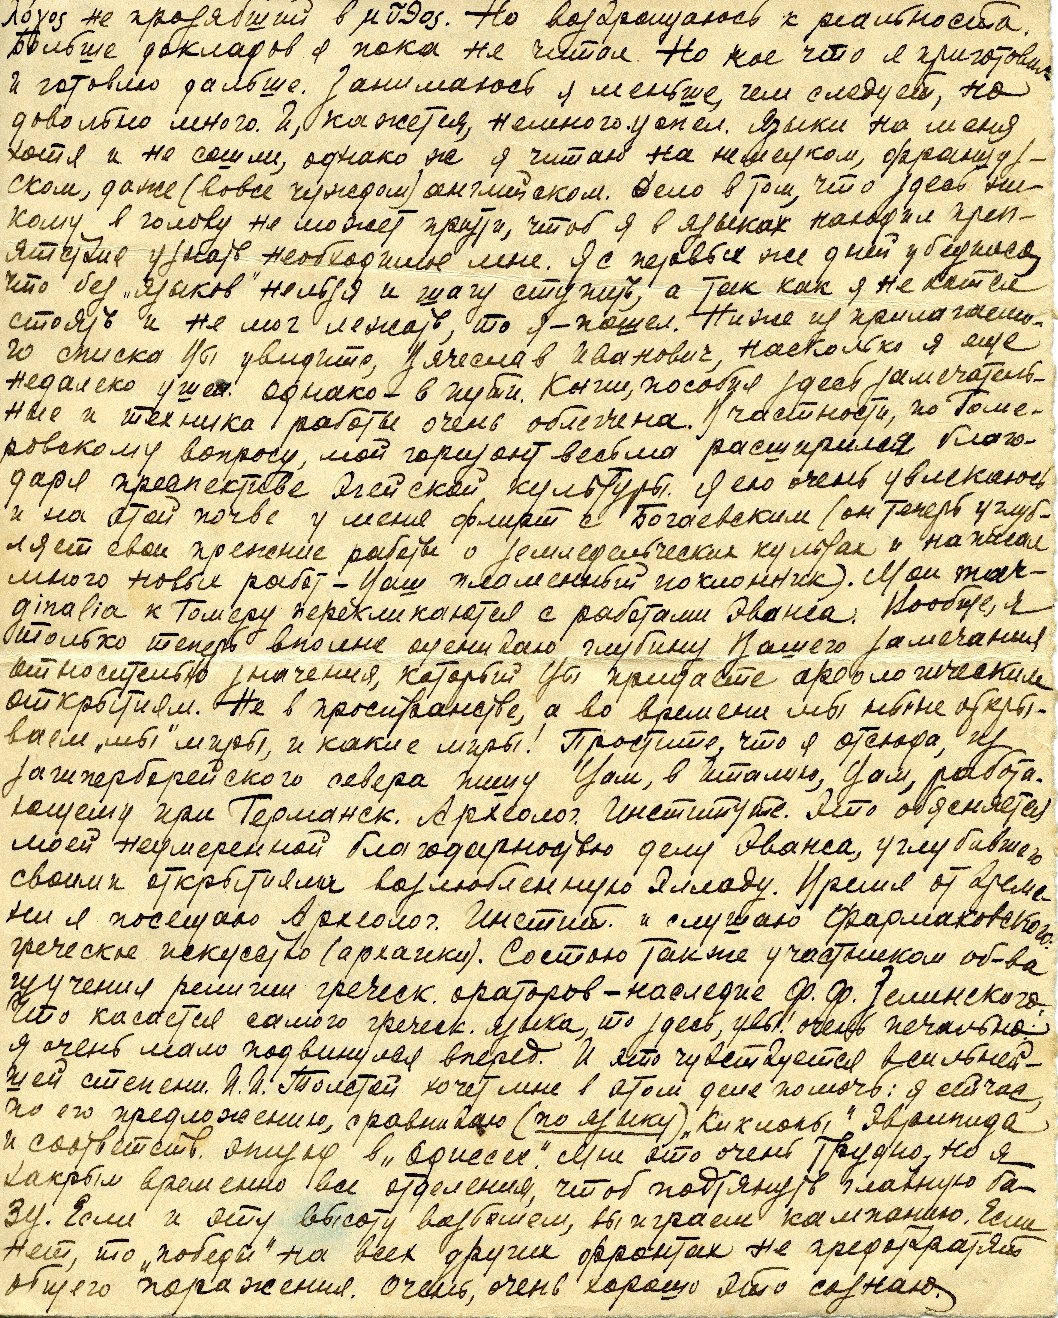 λόγος не прозябший в μῦθος. Но возвращаюсь к реальности.
Больше докладов я пока не читал. Но кое что я приготовил
и готовлю дальше. Занимаюсь я меньше, чем следует, но
довольно много. И, кажется, немного успел. Языки на меня
хотя и не сошли, однако ж я читаю на немецком, француз-
ском, даже (вовсе чуждом) английском. Дело в том, что здесь ни-
кому в голову не может прийти, чтоб я в языках находил преп-
ятствие узнать необходимое мне. Я с первых же дней убедился,
что без „языков" нельзя и шагу ступить, а так как я не хотел
стоять и не мог лежать, то я – пошел. Ниже из прилагаемо-
го списка Вы увидите, Вячеслав Иванович, насколько я еще
недалеко ушел. Однако – в пути. Книги, пособия здесь замечатель-
ные и техника работы очень облегчена. В частности, по Гоме-
ровскому вопросу, мой горизонт весьма расширился благо-
даря преспективе Эгейской культуры. Я ею очень увлекаюсь
и на этой почве у меня флирт с Богаевским (он теперь углуб-
ляет свои прежние работы о земледельческих культах и написал
много новых работ – Ваш пламенный поклонник). Мои mar-
ginalia к Гомеру перекликаются с работами Эванса. Вообще, я
только теперь вполне оцениваю глубину Вашего замечания
относительно значения, который Вы придаете археологическим
открытиям. Не в пространстве, а во времени мы ныне откры-
ваем „мы" миры, и какие миры! Простите, что я отсюда, из
загиперборейского севера пишу Вам, в Италию, Вам, работа-
ющему при Германск. Археолог. Институте. Это обясняется
моей неумеренной благодарностью делу Эванса, углубившего
своими открытиями возлюбленную Элладу. Время от време-
ни я посещаю Археолог. Инстит. и слушаю Фармаковского:
греческое искусство (архаики). Состою также участником об-ва
изучения религии греческ. ораторов – наследие Ф. Ф. Зелинского.
Что касается самого греческ. языка, то здесь, увы! очень печально:
я очень мало подвинулся вперед. И это чувствуется в сильней-
шей степени. И. И. Толстой хочет мне в этом деле помочь: я сейчас,
по его предложению, сравниваю (по языку) „Киклопы" Эврипида
и соответств. эпизод в „Одиссее". Мне это очень трудно, но я
закрыл временно все отделения, чтоб подтянуть главную ба-
зу. Если и эту высоту возьмем, выиграем кампанию. Если
нет, то „победы" на всех других фронтах не предотвратят
общего поражения. Очень, очень хорошо это сознаю.